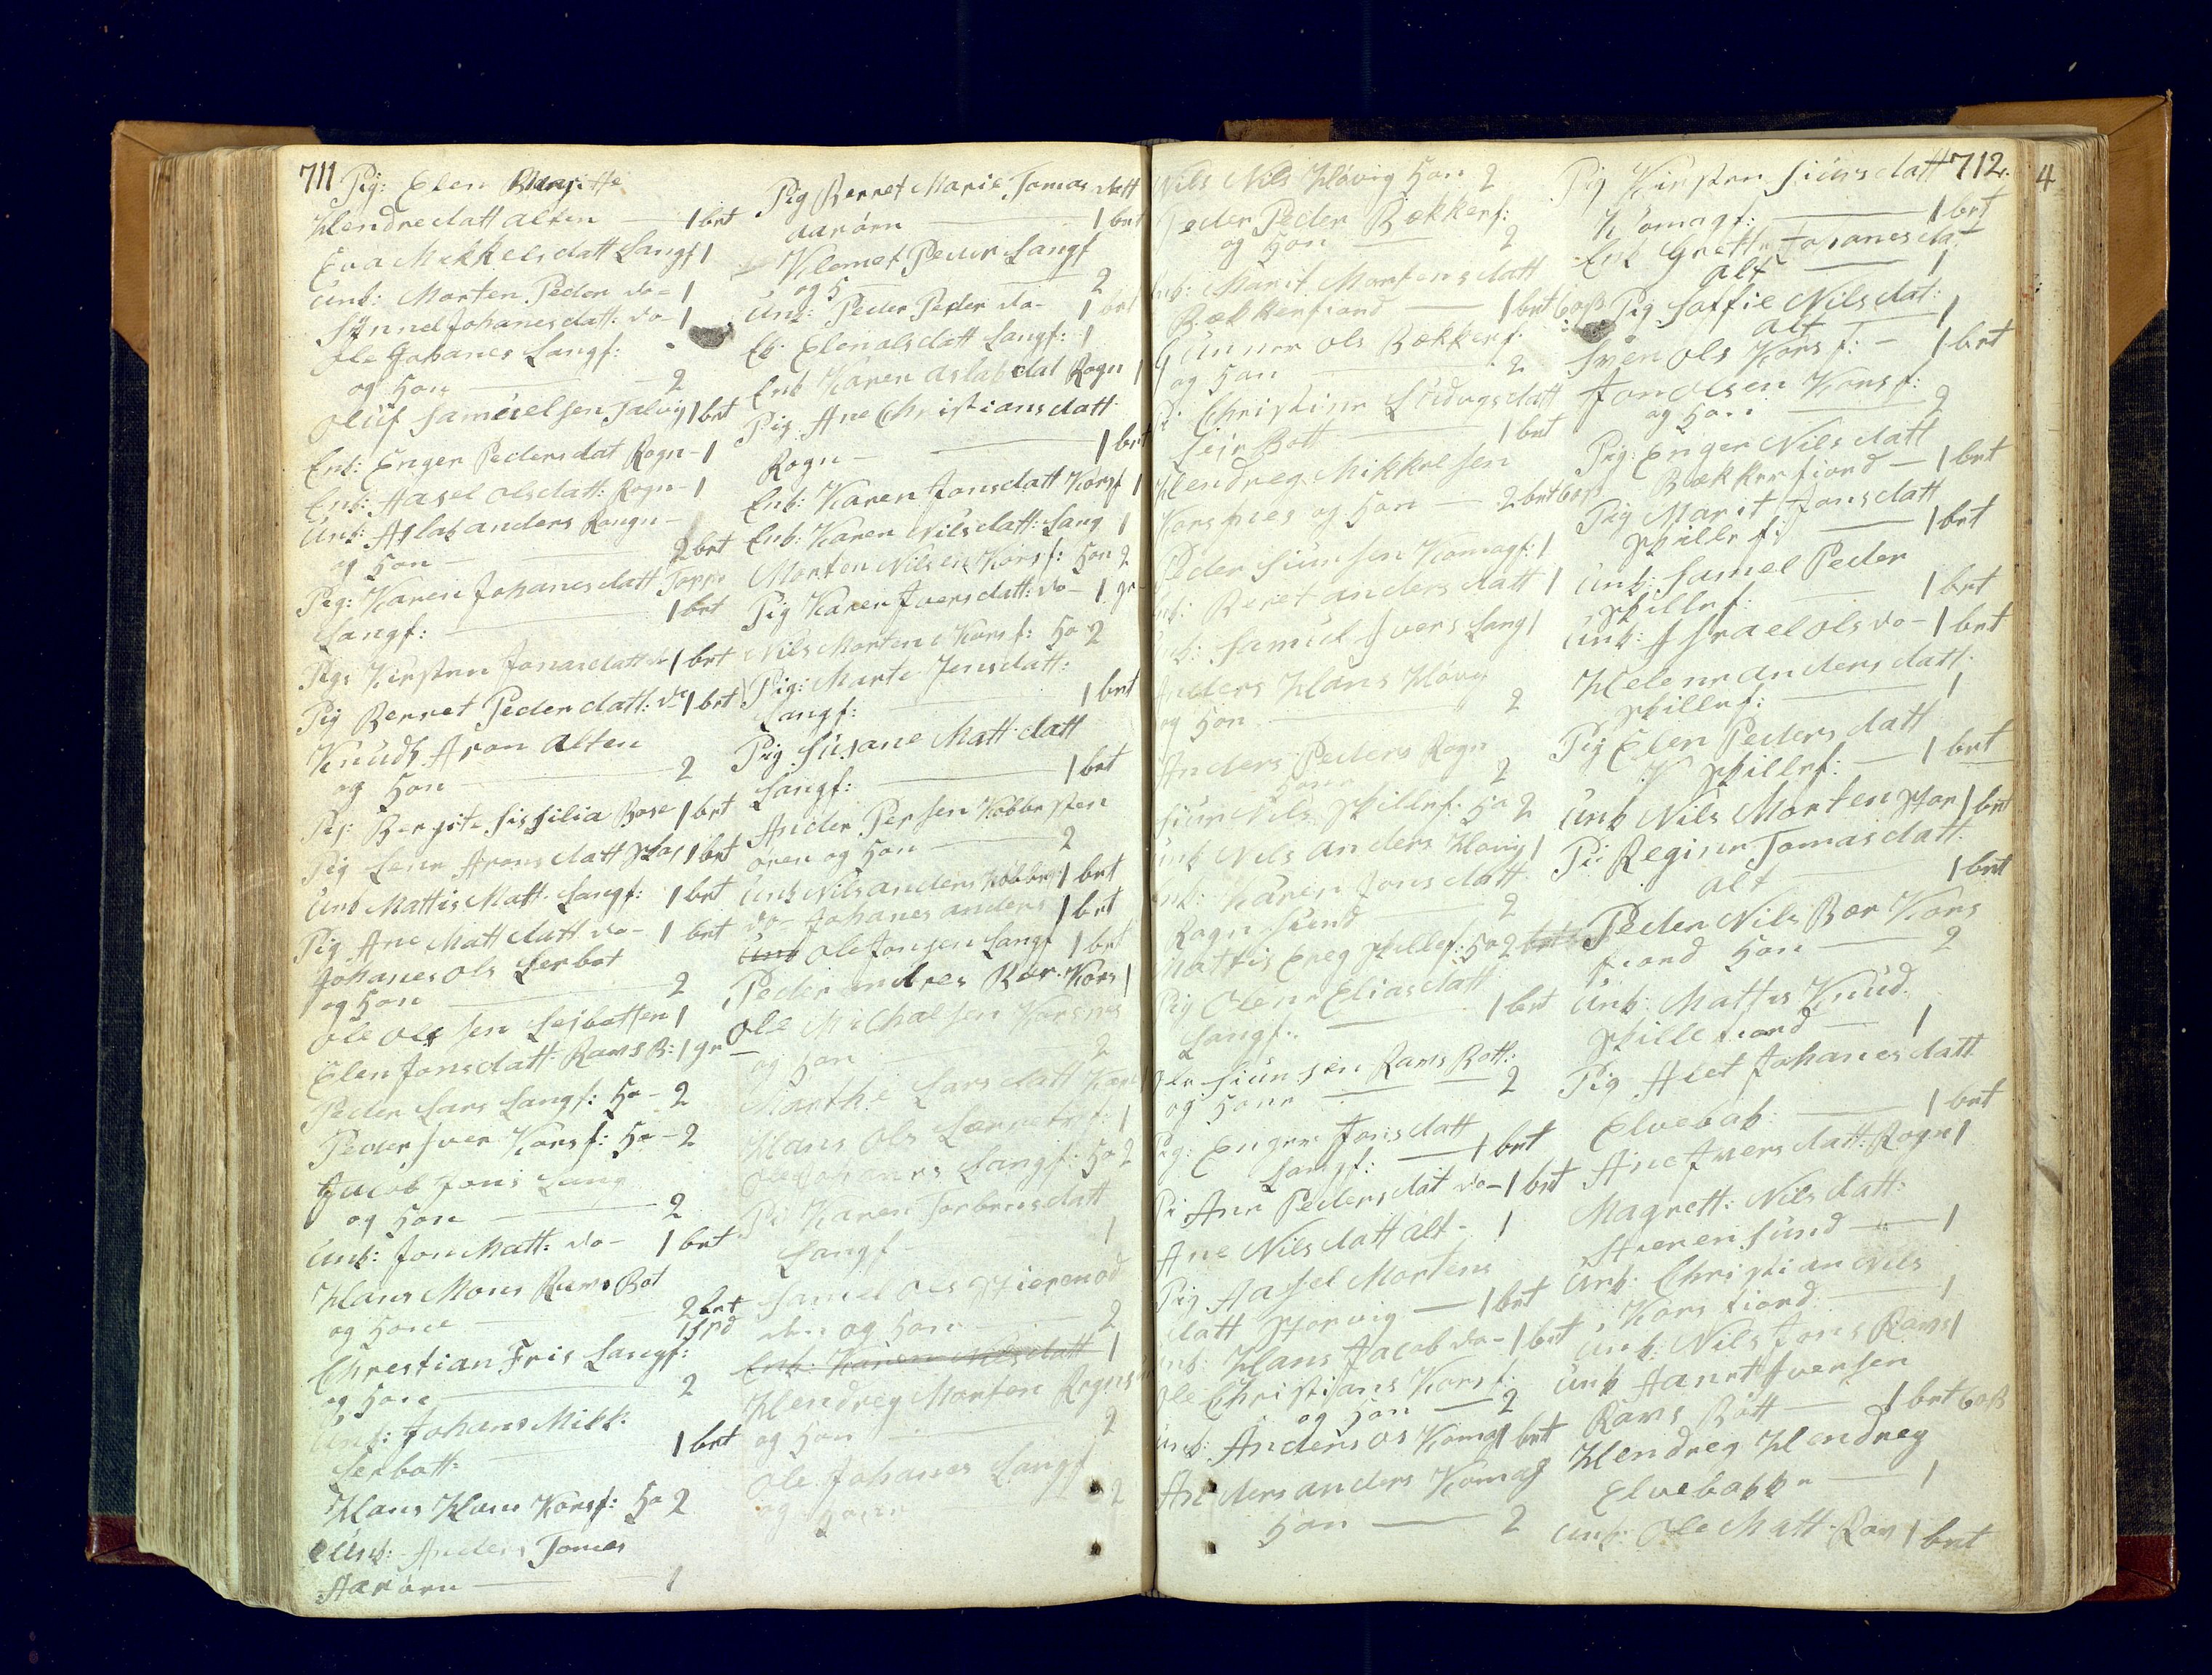 711
Pig: Elen Margitte
Hendredatt alten — 1 brt
Eva Mikkelsdatt Langf 1
Unk: Morten Peder do - 1
Synnel Johanesdatt: do - 1
Ole Johanes Langf:
og Hon — 2
Oluf Samuelsen Talvig 1 brt
Enk: Enger Pedersdat Rogn - 1
Enk: Aasel olsdatt: Rogn - 1
Unk: Aslak anders Rongn -
og Hon — 2 brt
Pig: Karen Johanesdatt Toppe
Langf: — 1 brt
Pig: Kirsten Jonasdatt do 1 brt
Pig Berret Pedersdatt: do 1 brt
Knuds Aron Alten
og Hon — 2
Pig: Bergite Sissilia Bose 1 brt
Pig Lene Aronsdatt 1 brt
Unk Mattis Matt. Langf: 1 brt
Pig Ane Mattdatt do - 1 brt
Johanes ols Lerbot
og Hon — 2
Ole olesen Leibotten 1
Elen Jonsdatt: Ravs B: 1 gr
Peder Lars Langf: Ho - 2
Peder Iver Korsf: Ho - 2
Jacob Jons Lang
og Hon — 2
Unk: Jon Matt: do - 1 brt
Hans Mons Ravs Bot
og Hone — 2 brt
Christian Fris Langf:
og Hone — 2
Unk: Johans Mikk:
Lerbott: — 1 brt
Hans Hans Korsf: Ho 2
Unk: Anders Tomes
Aarøren — 1
Pig Berret Marie Tomasdatt
aarørn — 1 brt
Klemet Peder Langf
og H — 2
Unk: Peder Peder do - 1 brt
Ek: Elen alsdatt Langf: 1
Enk Karen aslakdat Rogn 1
Pig Ane Christiansdatt
Rogn — 1 brt
Enk: Karen Jonsdatt Korsf 1
Enk: Karen Nilsdatt: Lang 1
Morten Nilsen Korsf: Hon 2
Pig Karen Iversdatt: do - 1 gr
Nils Morten Korsf: Ho 2
Pig: Marte Jensdatt:
Langf: — 1 brt
Pig Susane Matt datt
Langf: — 1 brt
Ander Persen Kobbesten
øren og Hon — 2
Unk Nils anders Kobbe: 1 brt
do - Johanes anders 1 brt
Unk Ole Jonsen Langf 1 brt
Peder andres Bær. Kors 1
Ole Michalsen Korsnes
og Hon — 2
Marthe Larsdatt Kors 1
Hans Ols 1
Ole Johanes Langf: Ho 2
Pi Karen Torbensdatt
Langf — 1
Samel ols Stierenod
den og Hon — 2
Enk: Karen Nilsdatt 1
Hendreg Morten Rogns
og Hon — 2
Ole Johanes Langf
og Hon — 2
712.
Nils Nils Høvig Hon 2
Peder Peder Bekkerf:
og Hon — 2
Enk: Marit Mortensdatt
Bækkerfiord — 1 brt 60 ß
Gunner ols Bekkerf:
og Hon — 2
Christine Ludvgsdatt
Leir Bott — 1 brt
Hendreg Mikkelsen
Korsnes og Hon — 2 brt 60 ß
Peder Siursen Komagf: 1
Enk: Beret andersdatt 1
Unk: Samuel Ivers Lang 1
Anders Hans Høvig
og Hon — 2
Anders Peders Rogn
Hone 2
Siur Nils Skillef. Ho 2
Unk Nils anders Høvig 1
Enk: Karen Jonsdatt:
Rogn Sund 2
Mattis Ereg Skillef: Ho 2
Pig Olene Eliasdatt
Langf: — 1 brt
Ole Siursen Ravs Bott:
og Hone — 2
Pig: Enger Jonsdatt
Langf: — 1 brt
Pi Ane Pedersdat do - 1 brt
Ane Nilsdatt alt - 1
Pig Aassel Mortens
datt Storvig — 1 brt
Unk: Hans Jacob do - 1 brt
Ole Christians Korsf:
og Hon — 2
Unk: Anders os Komag 1 brt
Anders anders Komag
Hon — 2
Pig Kirsten Siursdatt
Komagf: — 1 brt
Enk Grette Johanesda
alt — 1
Pig Saffie Nilsdat:
alt — 1
Sven ols Korsf: - 1 brt
Jon olsen Korsf:
og Hon — 2
Pig: Enger Nilsdatt
Bækkerfiord — 1 brt
Pig Marit Jonsdatt
Skillef: — 1 brt
Unk: Samel Peder
Skillef: — 1 brt
Unk: Israel ols do - 1 brt
Helene andersdatt:
Skillef: — 1
Pig Elen Pedersdatt
Skillef: — 1 brt
Unk Nils Morten Stor 1 brt
Pi: Regine Tomasdatt:
alt — 1 brt
Peder Nils Bær Kors
fiord Hon — 2
Unk: Mattis Knud:
Skillefiord — 1
Pig Alet Johanesdatt
Elvebak: — 1 brt
Ane Iversdatt: Rogn 1
Magrett: Nilsdatt:
Stierensund — 1
Unk: Christian Nils
Korsfiord — 1
Unk: Nils Jons Ravs 1
Unk Aanet Iversen
Ravs Bott — 1 brt 60 ß
Hendreg Hendreg
Elvebakke — 1
Unk: Ole Matt. Rav 1 brt
4